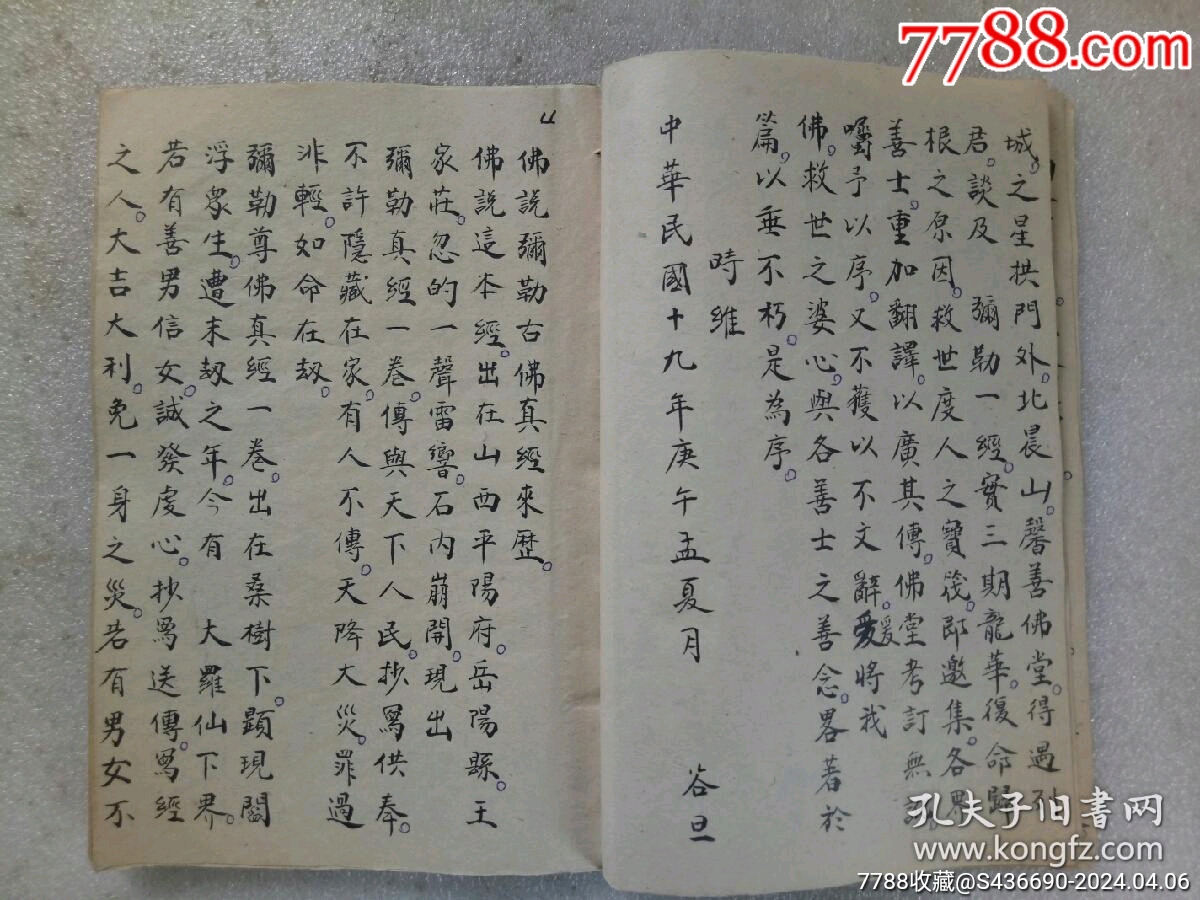 7788.com
城。之星拱門外。北晨山。馨善佛堂。得過
君。談及　彌勒一經。實三期龍華。復命歸
根之原因。救世度人之寶筏。即邀集。各界
善士。重加翻譯。以廣其傳。佛堂考訂無
囑予以序。又不獲以不文辭。爰將我
佛。救世之婆心。與各善士之善念。畧著於
篇。以垂不朽。是為序。
時維
中華民國十九年庚午孟夏月　谷旦
4
佛說彌勒古佛真經來歷。
佛說這本經。出在山西平陽府。岳陽縣。王
家莊。忽的一聲雷響。石內崩開。現出
彌勒真經一卷。傳與天下人民。抄寫供奉。
不許隱藏在家。有人不傳。天降大災。罪過
非輕。如命在刼。
彌勒尊佛真經一卷。出在桑樹下。顕現閻
浮眾生。遭末刼之年。今有　大羅仙下界。
若有善男信女。誠發虔心。抄寫送傳。寫經
之人。大吉大利。免一身之災。若有男女不
5
孔夫子旧书网
www.kongfz.com
7788收藏@S436690-2024.04.06